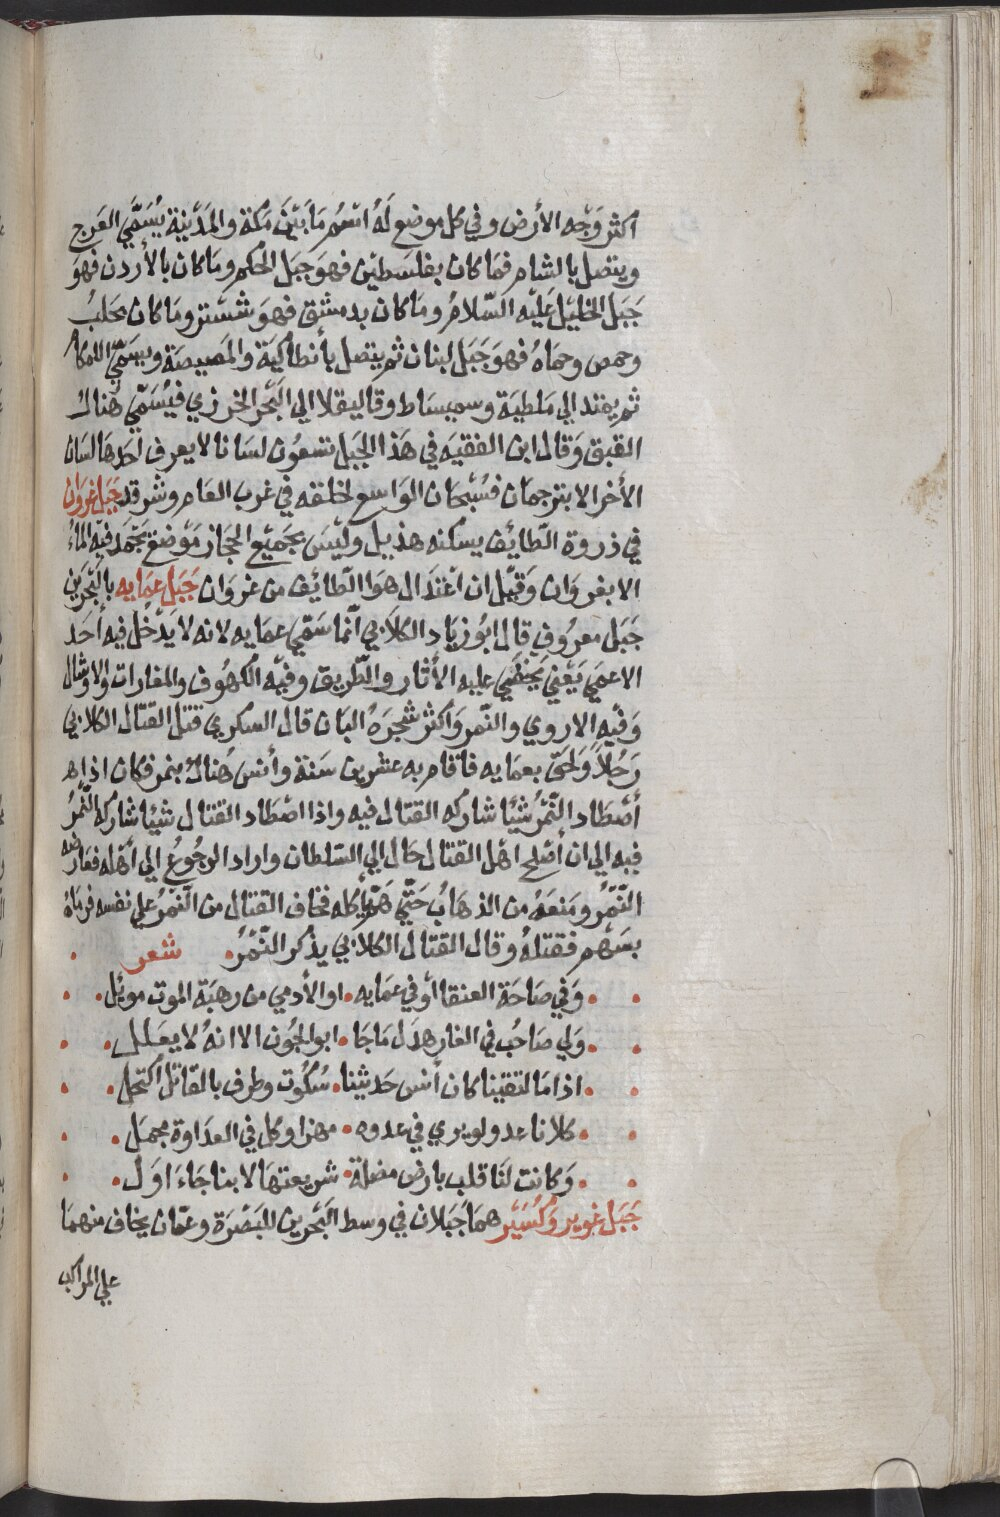 اكثر وَجْه الأرض وفي كل موضع لَهُ اسْمُ مَا بَيْنَ مَكة والمَدينة يُسَمَّي العَرج
ويتصل بالشام فمَا كان بفلسَطين فهوَ جبَل الحكم ومَا كان بالأردن فهوَ
جَبَل الخليْل عَليْه السّلامُ ومَا كان بدمشق فهوَ شسَنتر ومَا كان بحلبُ
وحمص وحمَاهُ فهوَ جَبَل لبنان ثم يتصل بأنطاكيَة والمَصيصَة ويسَمّي اللكام
ثم يمتد الي مَلطيَة وسميسَاط وقاليقلا الي البَحْر الخرزي فيُسَمّي هُناك
القبق وَقال ابن الفقيْه في هَذ الجبَل تسعُون لسَانا لا يعرف احَدهَا لسَان
الأخر الا بترجمَان فسُبْحَان الوَاسع لخلقه في غرب العام وشرقه جَبَل غروَان
في ذروة الطّائِف يسكنه هذيل وليْسَ بجَميْع الحجَاز مَوْضع يَجْمَد فيْه الماءُ
الا بغروَان وَقيْل ان اعْتدَال هوَا الطّائِف من غروَان جَبَل عمَايه بالبَحْرَين
جَبَل معرُوف قال ابُو زيَاد الكلَابي انّما سَمّي عمَايه لانه لا يَدْخل فيه أحَد
الا عمَي يَعْني يَخْفَي عليه الأثار والطّريق وفيْه الكهُوف والمغارات والاوشال
وَفيْه الاروي والنّمر وَاكثر شجرَهُ البَان قال السكري قتل القتّال الكلابي
رَجُلاً وَلحَق بعمَايه فاقام به عشرين سَنة وأنس هُناك بنمر فكان اذا هـ
أصْطاد النّمْرُ شيْئا شاركه القتّال فيه واذا اصْطاد القتال شيْئا شاركه النّمْرُ
فيه الي ان أصْلح اهْل القتال حَال الي السّلطان واراد الرجُوعُ الي أهْله فعَارضه
النّمْرُ ومَنعَهُ من الذهَابُ حَتّي هَمّ بأكله فخاف القتال من النّمْرُ علي نفسه فرمَاهُ
بسَهْم فقتلهُ وقال القتال الكلابي يذكر النّمْرُ. شعر
وَفي صَاحَة العنقا أوْ في عمَايه. او الأدمي من رهبَة الموت موئل.
وَلي صَاحُب في الغار هدَل مَا جَا. ابو الجُون الا انهُ لا يعَلل.
اذا مَا لتقيْنا كان أنس حَديثنا. سُكُوت وطرف بالقاتل اكتحل.
كلانا عدو لو يري في عدوه. مهزا وكل في العدَاوة مجمَل.
وَكانت لنَا قلب بارض مضلة. شريعتهَا لا بنا جَاءَ اوَل.
جَبَل غوير وَكُسَيْر همَا جَبَلان في وسط البَحْرين البَصْرَة وعمّان يخاف منهمَا
علي المراكب